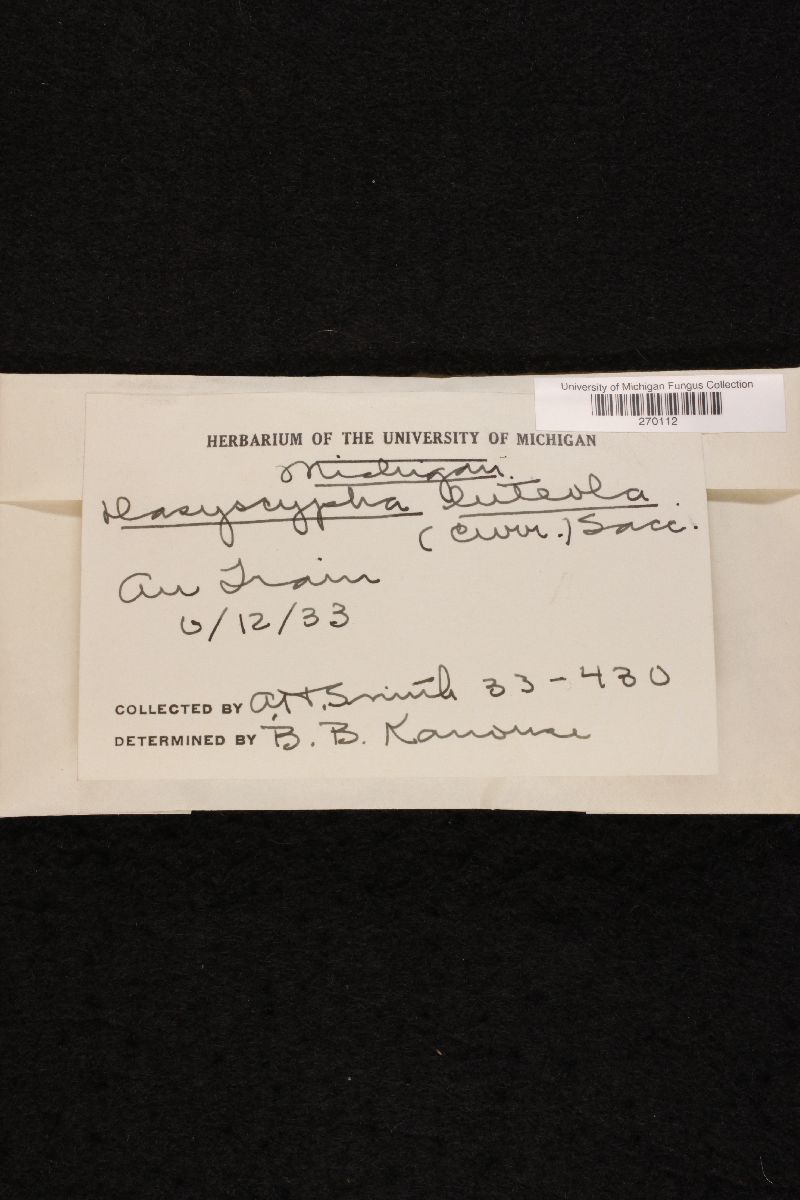 University of Michigan Fungus Collection
270112
HERBARIUM OF THE UNIVERSITY OF MICHIGAN
Michigan.
Dasyscypha luteola
(Curr.) Sacc.
Au Train
6/12/33
COLLECTED BY A.H. Smith 33-430
DETERMINED BY B. B. Kanouse